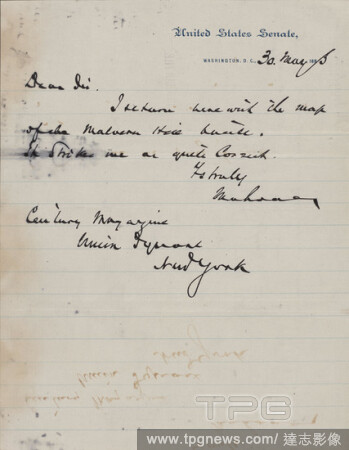 United States Senate,
WASHINGTON, D.C., 30 May 188
Dear Sir.
I return herewith the map
of the Malvern Hill battle.
It strikes me as quite correct.
Yrs truly
Mahone
Century Magazine
Union Square
New York
TPG
www.tpgnews.com / 達志影像